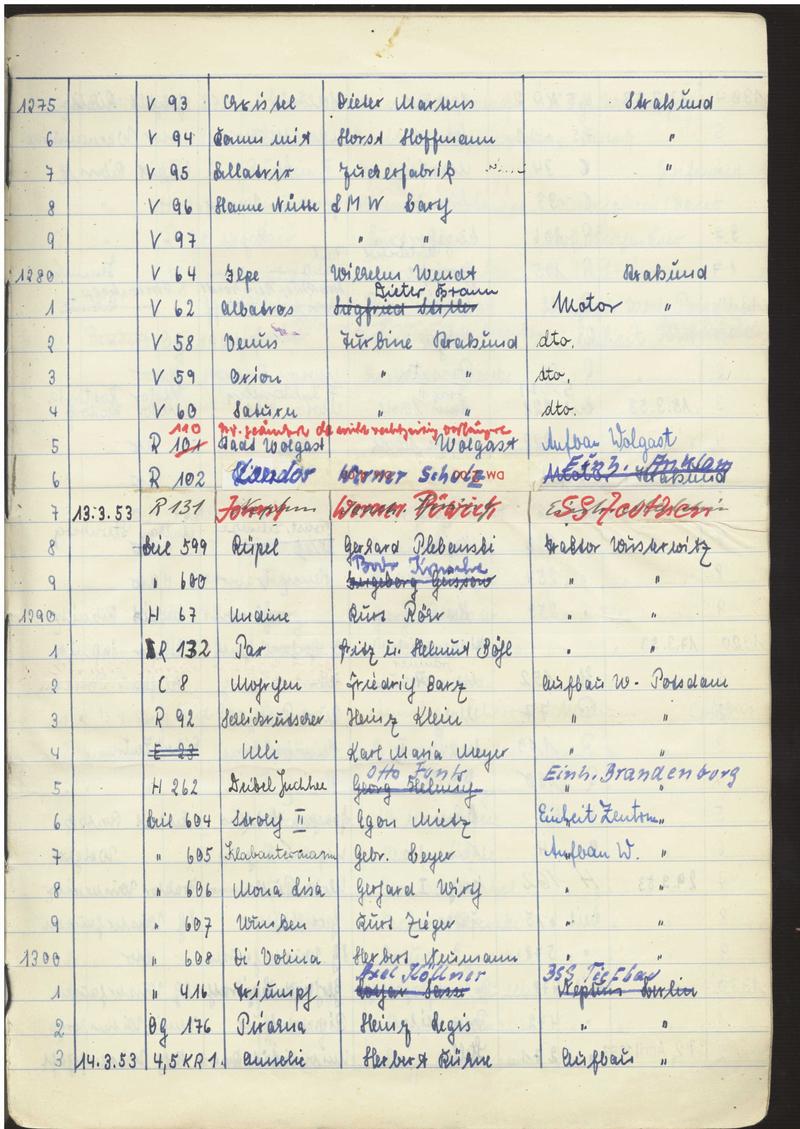 1275 V 93 Christel Dieter Martens Stralsund
6 V 94 Komm mit Horst Hoffmann "
7 V 95 Bellatrix Zuckerfabrik "
8 V 96 Hanne Nütte LMW Barth
9 V 97 " "
1280 V 64 Ilse Wilhelm Wendt Stralsund
Dieter Bramm
1 V 62 Albatros Siegfried Motor "
2 V 58 Venus Turbine Stralsund dto.
3 V 59 Orion " " dto.
4 V 60 Saturn " " dto.
110
5 R 101 Stadt Wolgast Wolgast Aufbau Wolgast
Einh. Anklam
6 R 102 Kondor Werner Scholz Motor Stralsund
7 13.3.53 R 131 Werner
8 Seil 599 Rüpel Gerhard Plebanski Traktor Wusterwitz
Bodo
9 " 600 Ingeborg " "
1290 H 67 Undine Kurt Röhr " "
1 R 132 Pax Fritz u. Helmut Böhl " "
2 C 8 Mohrchen Friedrich Barz Aufbau W - Potsdam
3 R 92 Heinz Klein " "
4 E 23 Ulli Karl Maria Meyer " "
Otto Funk Einh. Brandenburg
5 H 262 Deibel Juchhee Georg " "
6 Seil 604 Strolch II Egon Mietz Einheit Zentrum "
7 " 605 Klabautermann Gebr. Beyer Aufbau W. "
8 " 606 Mona Lisa Gerhard Wirth " "
9 " 607 Wimken Kurt Zieger " "
1300 " 608 Di Volina Herbert Neumann " "
Axel Köllner BSG Tiefbau
1 " 416 Triumpf Lothar Neptun Berlin
2 Og 176 Piranha Heinz Regis " "
3 14.3.53 4,5 KR 1. Annelie Herbert Kühne Aufbau "